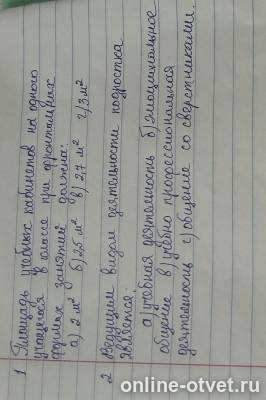 1 Площадь учебных кабинетов на одного
учащегося в классе при фронтальных
формах занятий должна:
а) 2 м² б) 2,5 м² в) 2,7 м² г) 3 м²
2 Ведущим видом деятельности подростка
является:
а) учебная деятельность б) эмоциональное
общение в) учебно профессиональная
деятельность г) общение со сверстниками.
online-otvet.ru